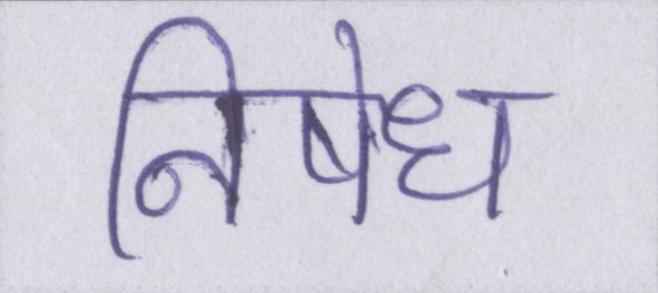 निषेध